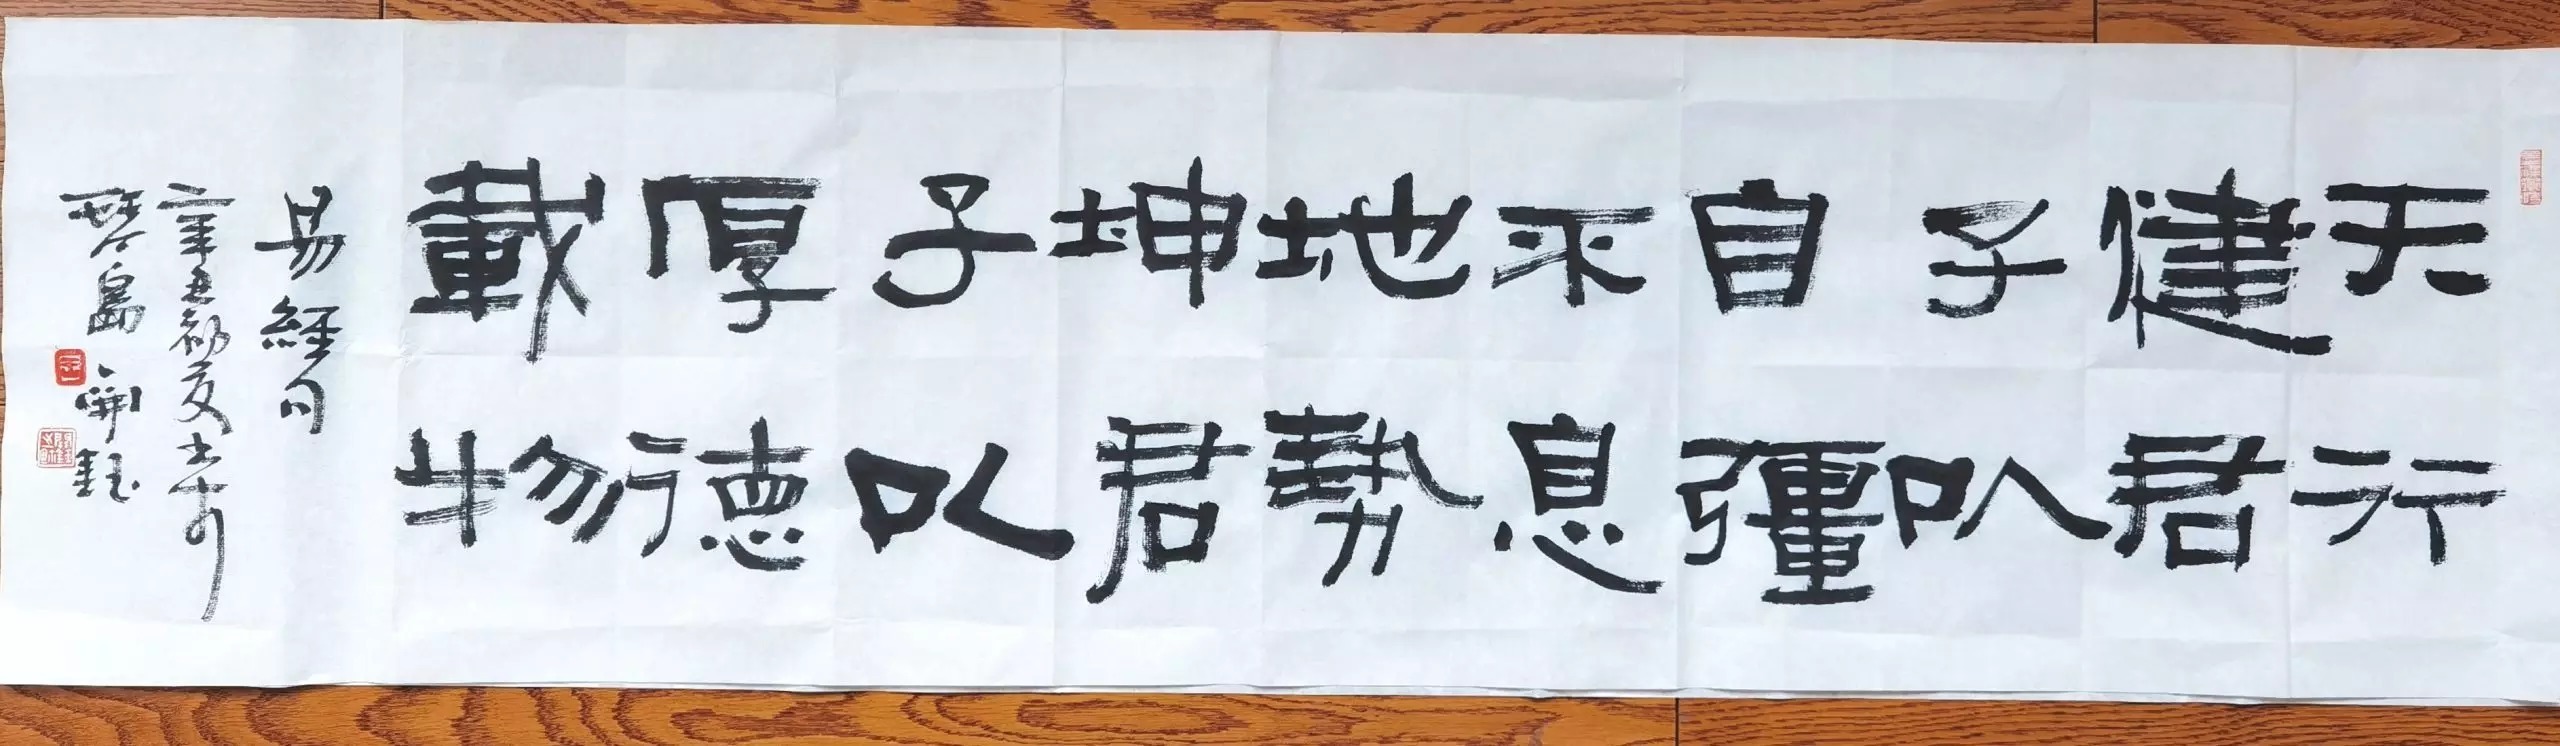 天行
健君
子以
自彊
不息
地勢
坤君
子以
厚德
載物
易經句
辛丑初夏 書
琴島 開鈺